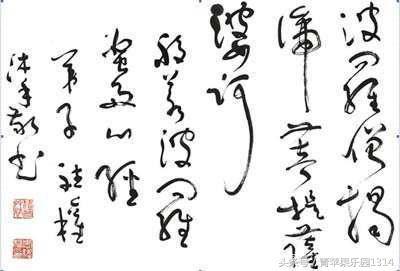 波羅僧揭
諦菩提薩
婆訶
般若波羅
蜜多心經
弟子
沐手敬書
头条号 / 青苹果乐园1314